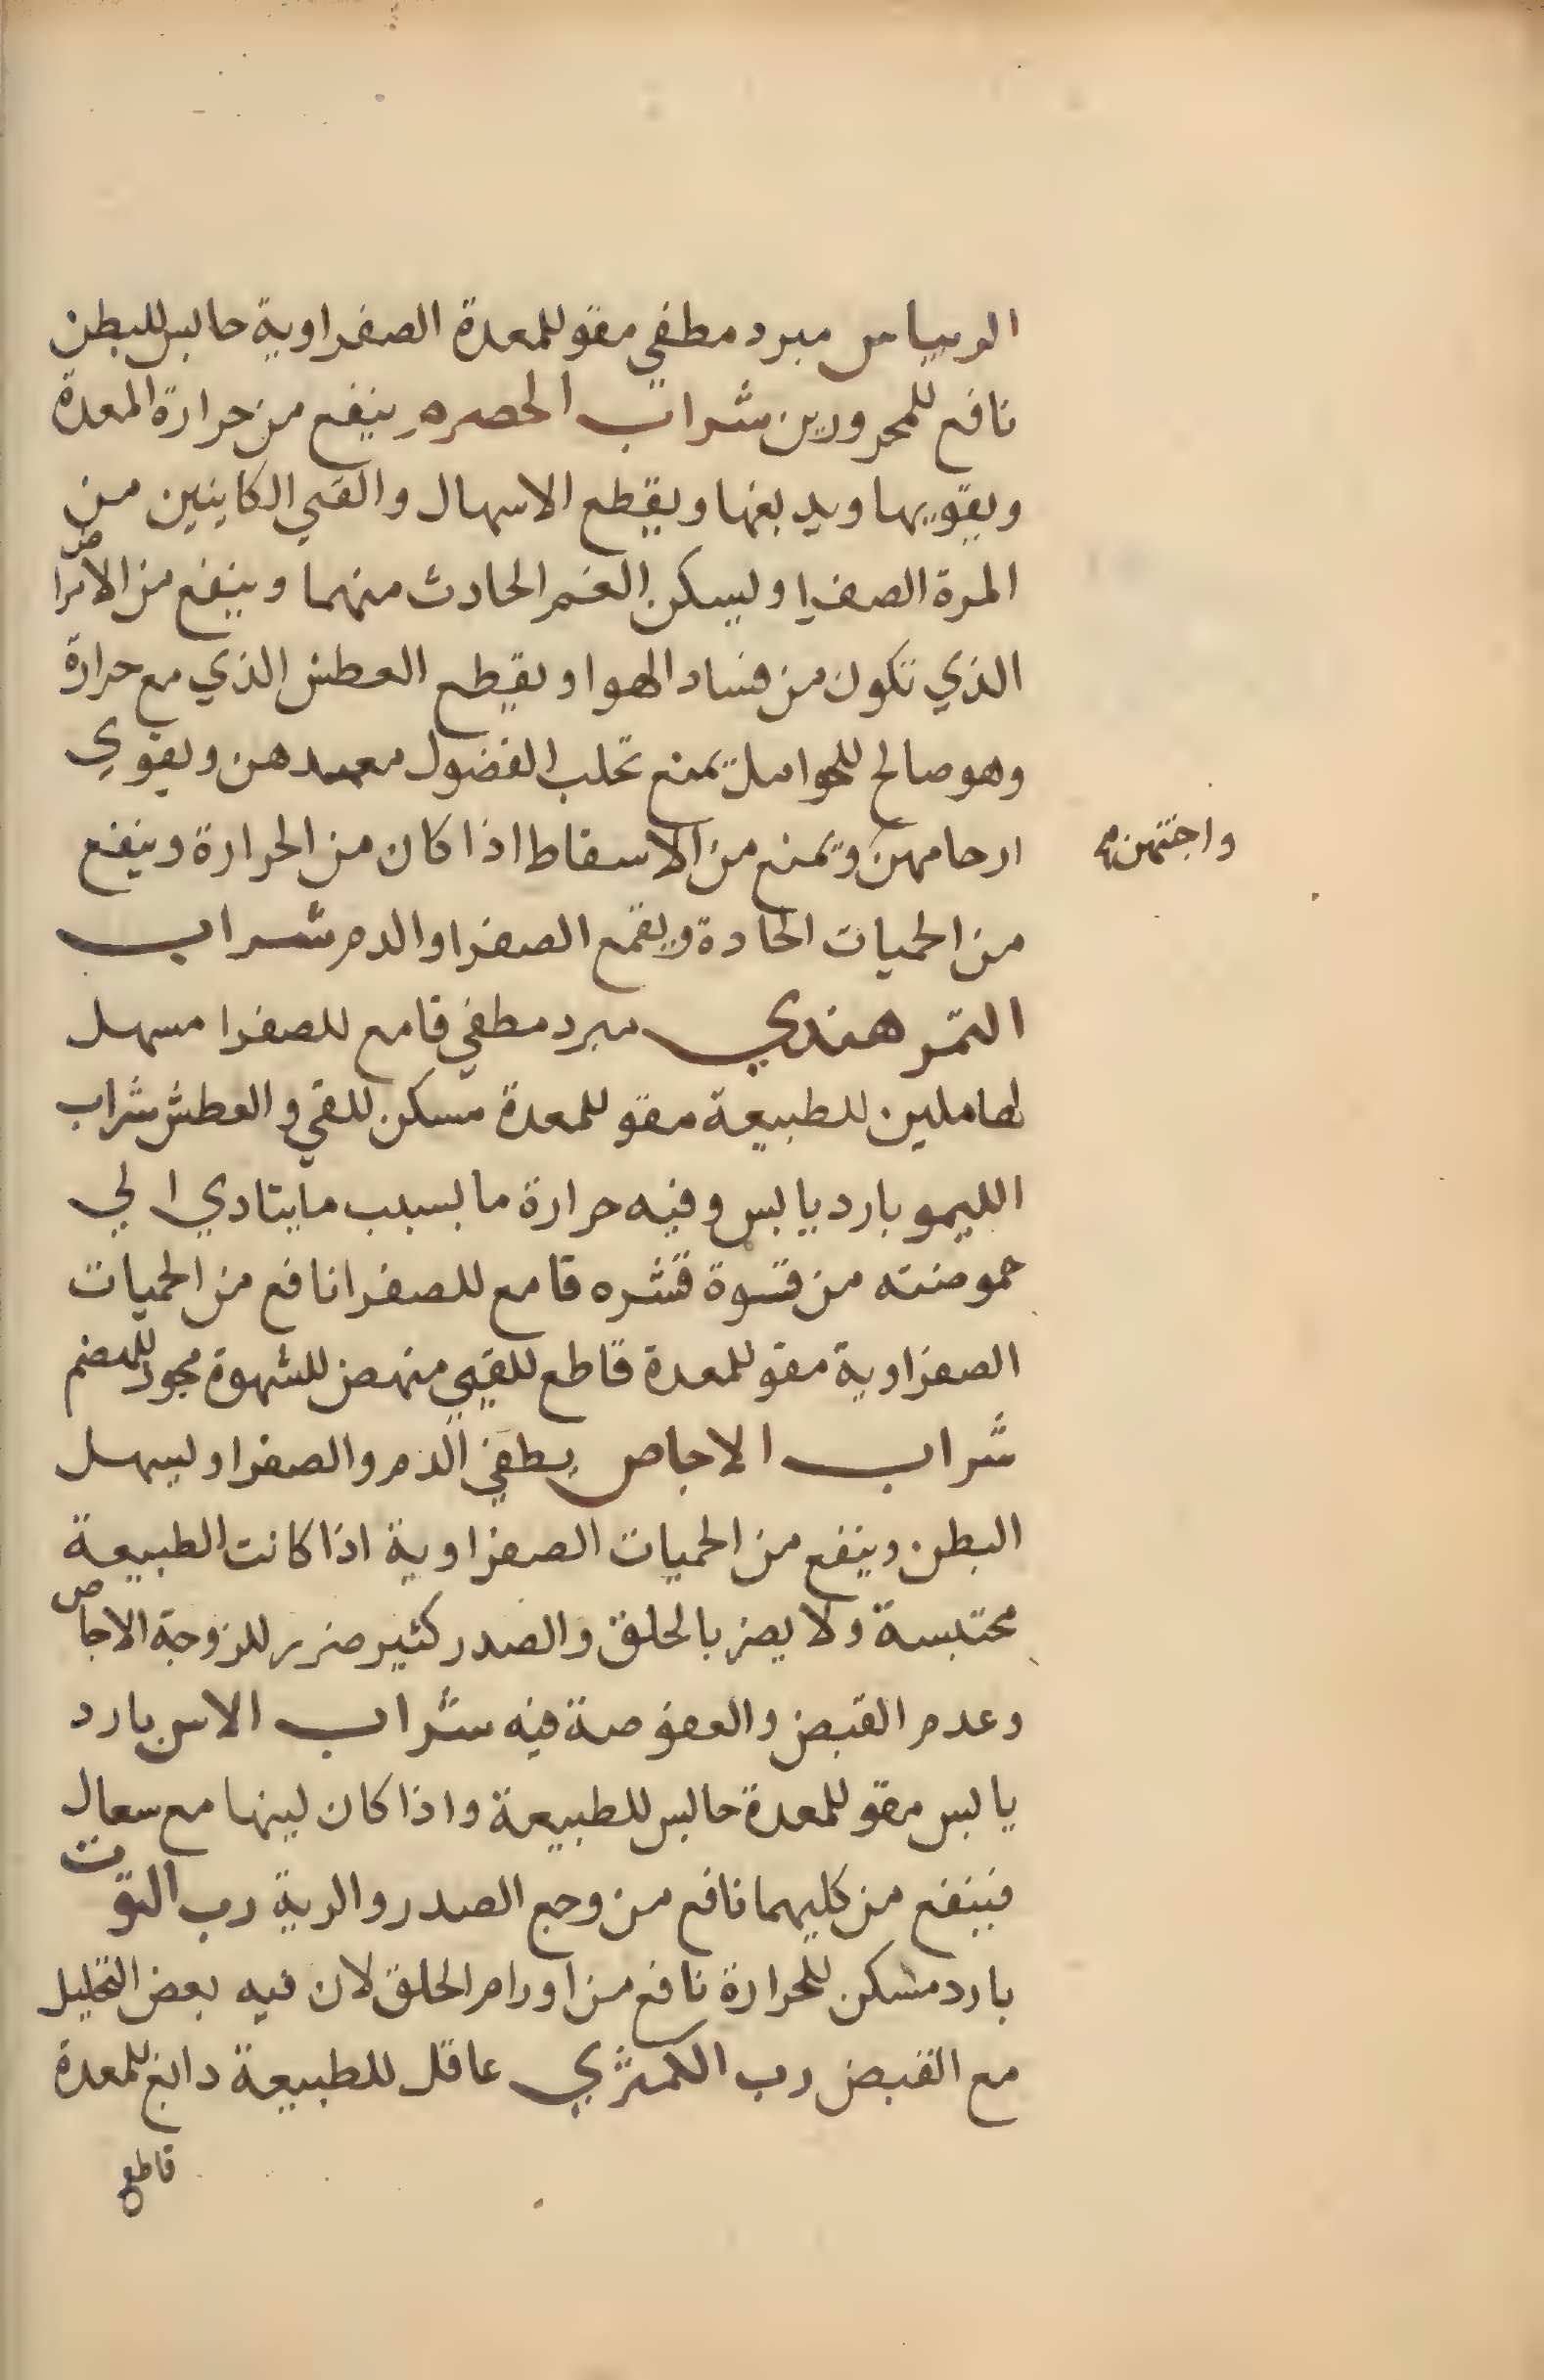 الريباس مبرد مطفي مقو للمعدة الصفراوية حابس للبطن
نافع للمحرورين شراب الحصرم ينفع من حرارة المعدة
ويقويها ويدبغها ويقطع الاسهال والقي الكاينين من
المرة الصفرا ويسكن الغم الحادث منهما وينفع من الامراض
الذي تكون من فساد الهوا ويقطع العطش الذي مع حرارة
وهو صالح للحوامل يمنع تحلب الفضول معدهن ويقوي
ارحامهن ويمنع من الاسقاط اذا كان من الحرارة وينفع
واجنتهن
من الحميات الحادة ويقمع الصفرا والدم شراب
التمر هندي مبرد مطفي قامع للصفرا مسهل
للطبيعة مقو للمعدة مسكن للقي والعطش شراب
الليمو بارد يابس وفيه حرارة ما بسبب ما يتادي الي
حموضته من قسوة قشره قامع للصفرا نافع من الحميات
الصفراوية مقو للمعدة قاطع للقيي منهض للشهوة مجود للهضم
شراب الاجاص يطفي الدم والصفرا ويسهل
البطن وينفع من الحميات الصفراوية اذا كانت الطبيعة
محتبسة ولا يضر بالحلق والصدر كثير ضرر للزوجة الاجاص
وعدم القبض والعفوصة فيه شراب الاس بارد
يابس مقو للمعدة حابس للطبيعة واذا كان لينها مع سعال
فينفع من كليهما نافع من وجع الصدر والرية رب التوت
بارد مسكن للحرارة نافع من اورام الحلق لان فيه بعض التحليل
مع القبض رب الكمثري عاقل للطبيعة دابغ للمعدة
قاطع